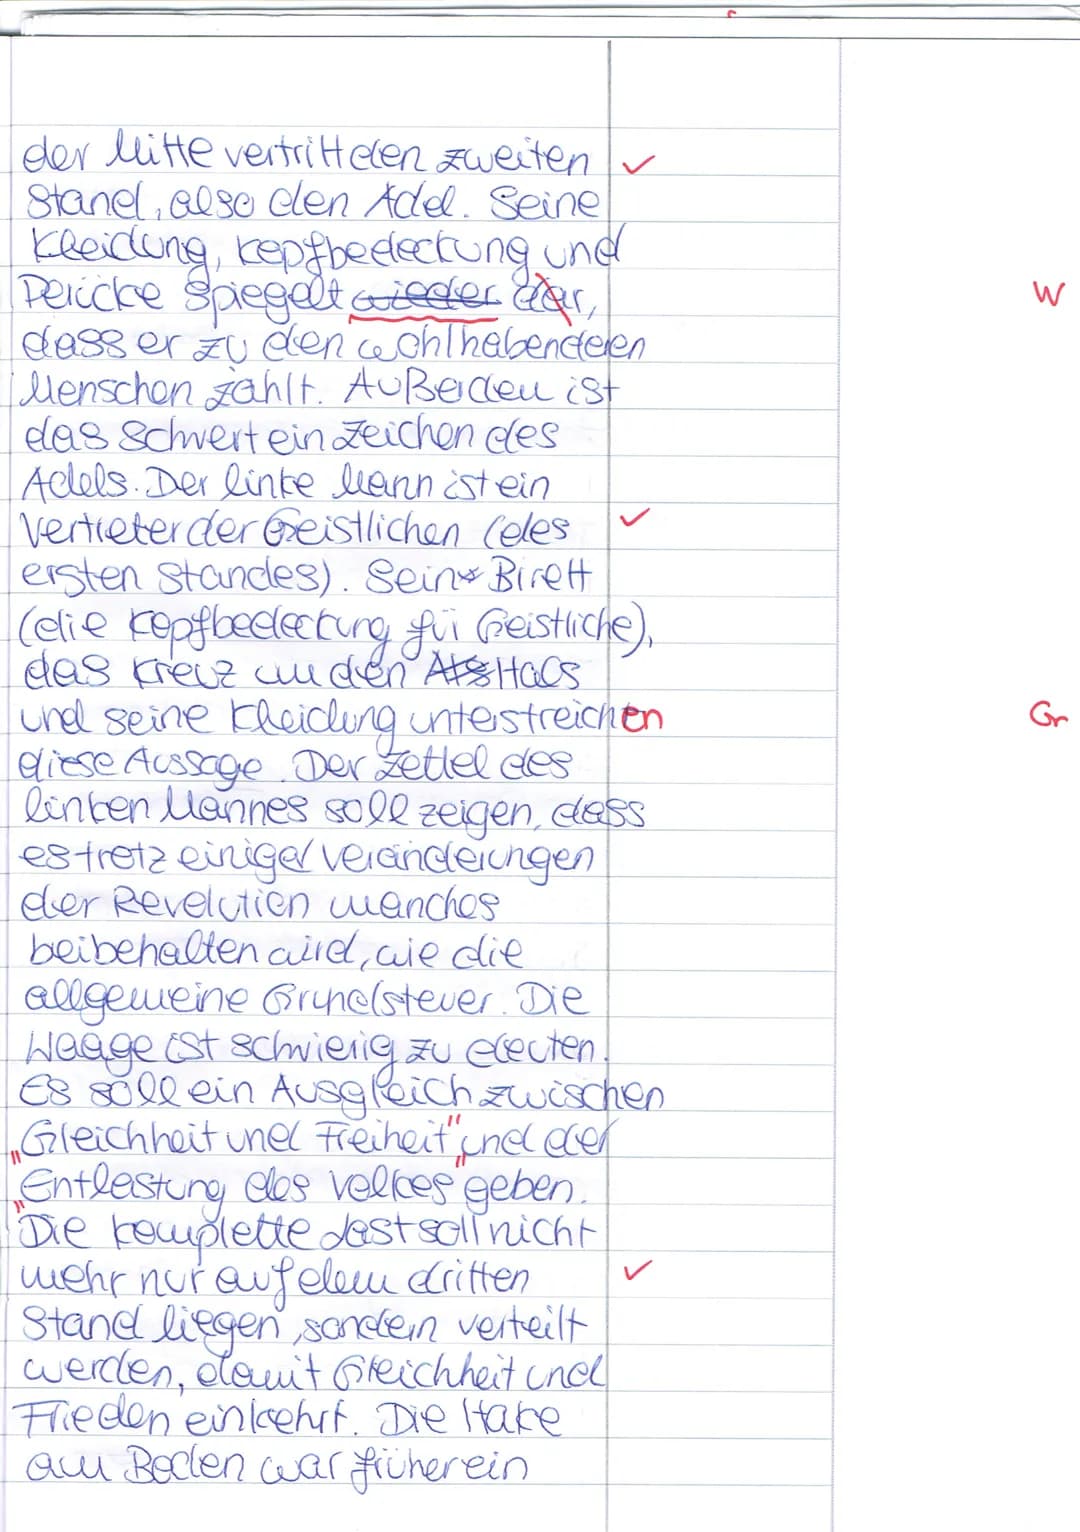 der Mitte vertritt den zweiten
Stand, also den Adel. Seine
Kleidung, Kopfbedeckung und
Perücke spiegelt wieder dar,
W
dass er zu den wohlhabenderen
Menschen zählt. Außerdem ist
das Schwert ein Zeichen des
Adels. Der linke Mann ist ein
Vertreter der Geistlichen (des
ersten Standes). Sein Birett
(die Kopfbedeckung für Geistliche),
das Kreuz um den Hals
und seine Kleidung unterstreichen
Gr
diese Aussage. Der Zettel des
linken Mannes soll zeigen, dass
es trotz einiger Veränderungen
der Revolution manches
beibehalten wird, wie die
allgemeine Grundsteuer. Die
Waage ist schwierig zu deuten.
Es soll ein Ausgleich zwischen
„Gleichheit und Freiheit" und der
„Entlastung des Volkes" geben.
Die komplette Last soll nicht
mehr nur auf dem dritten
Stand liegen, sondern verteilt
werden, damit Gleichheit und
Frieden einkehrt. Die Hake
am Boden war früher ein